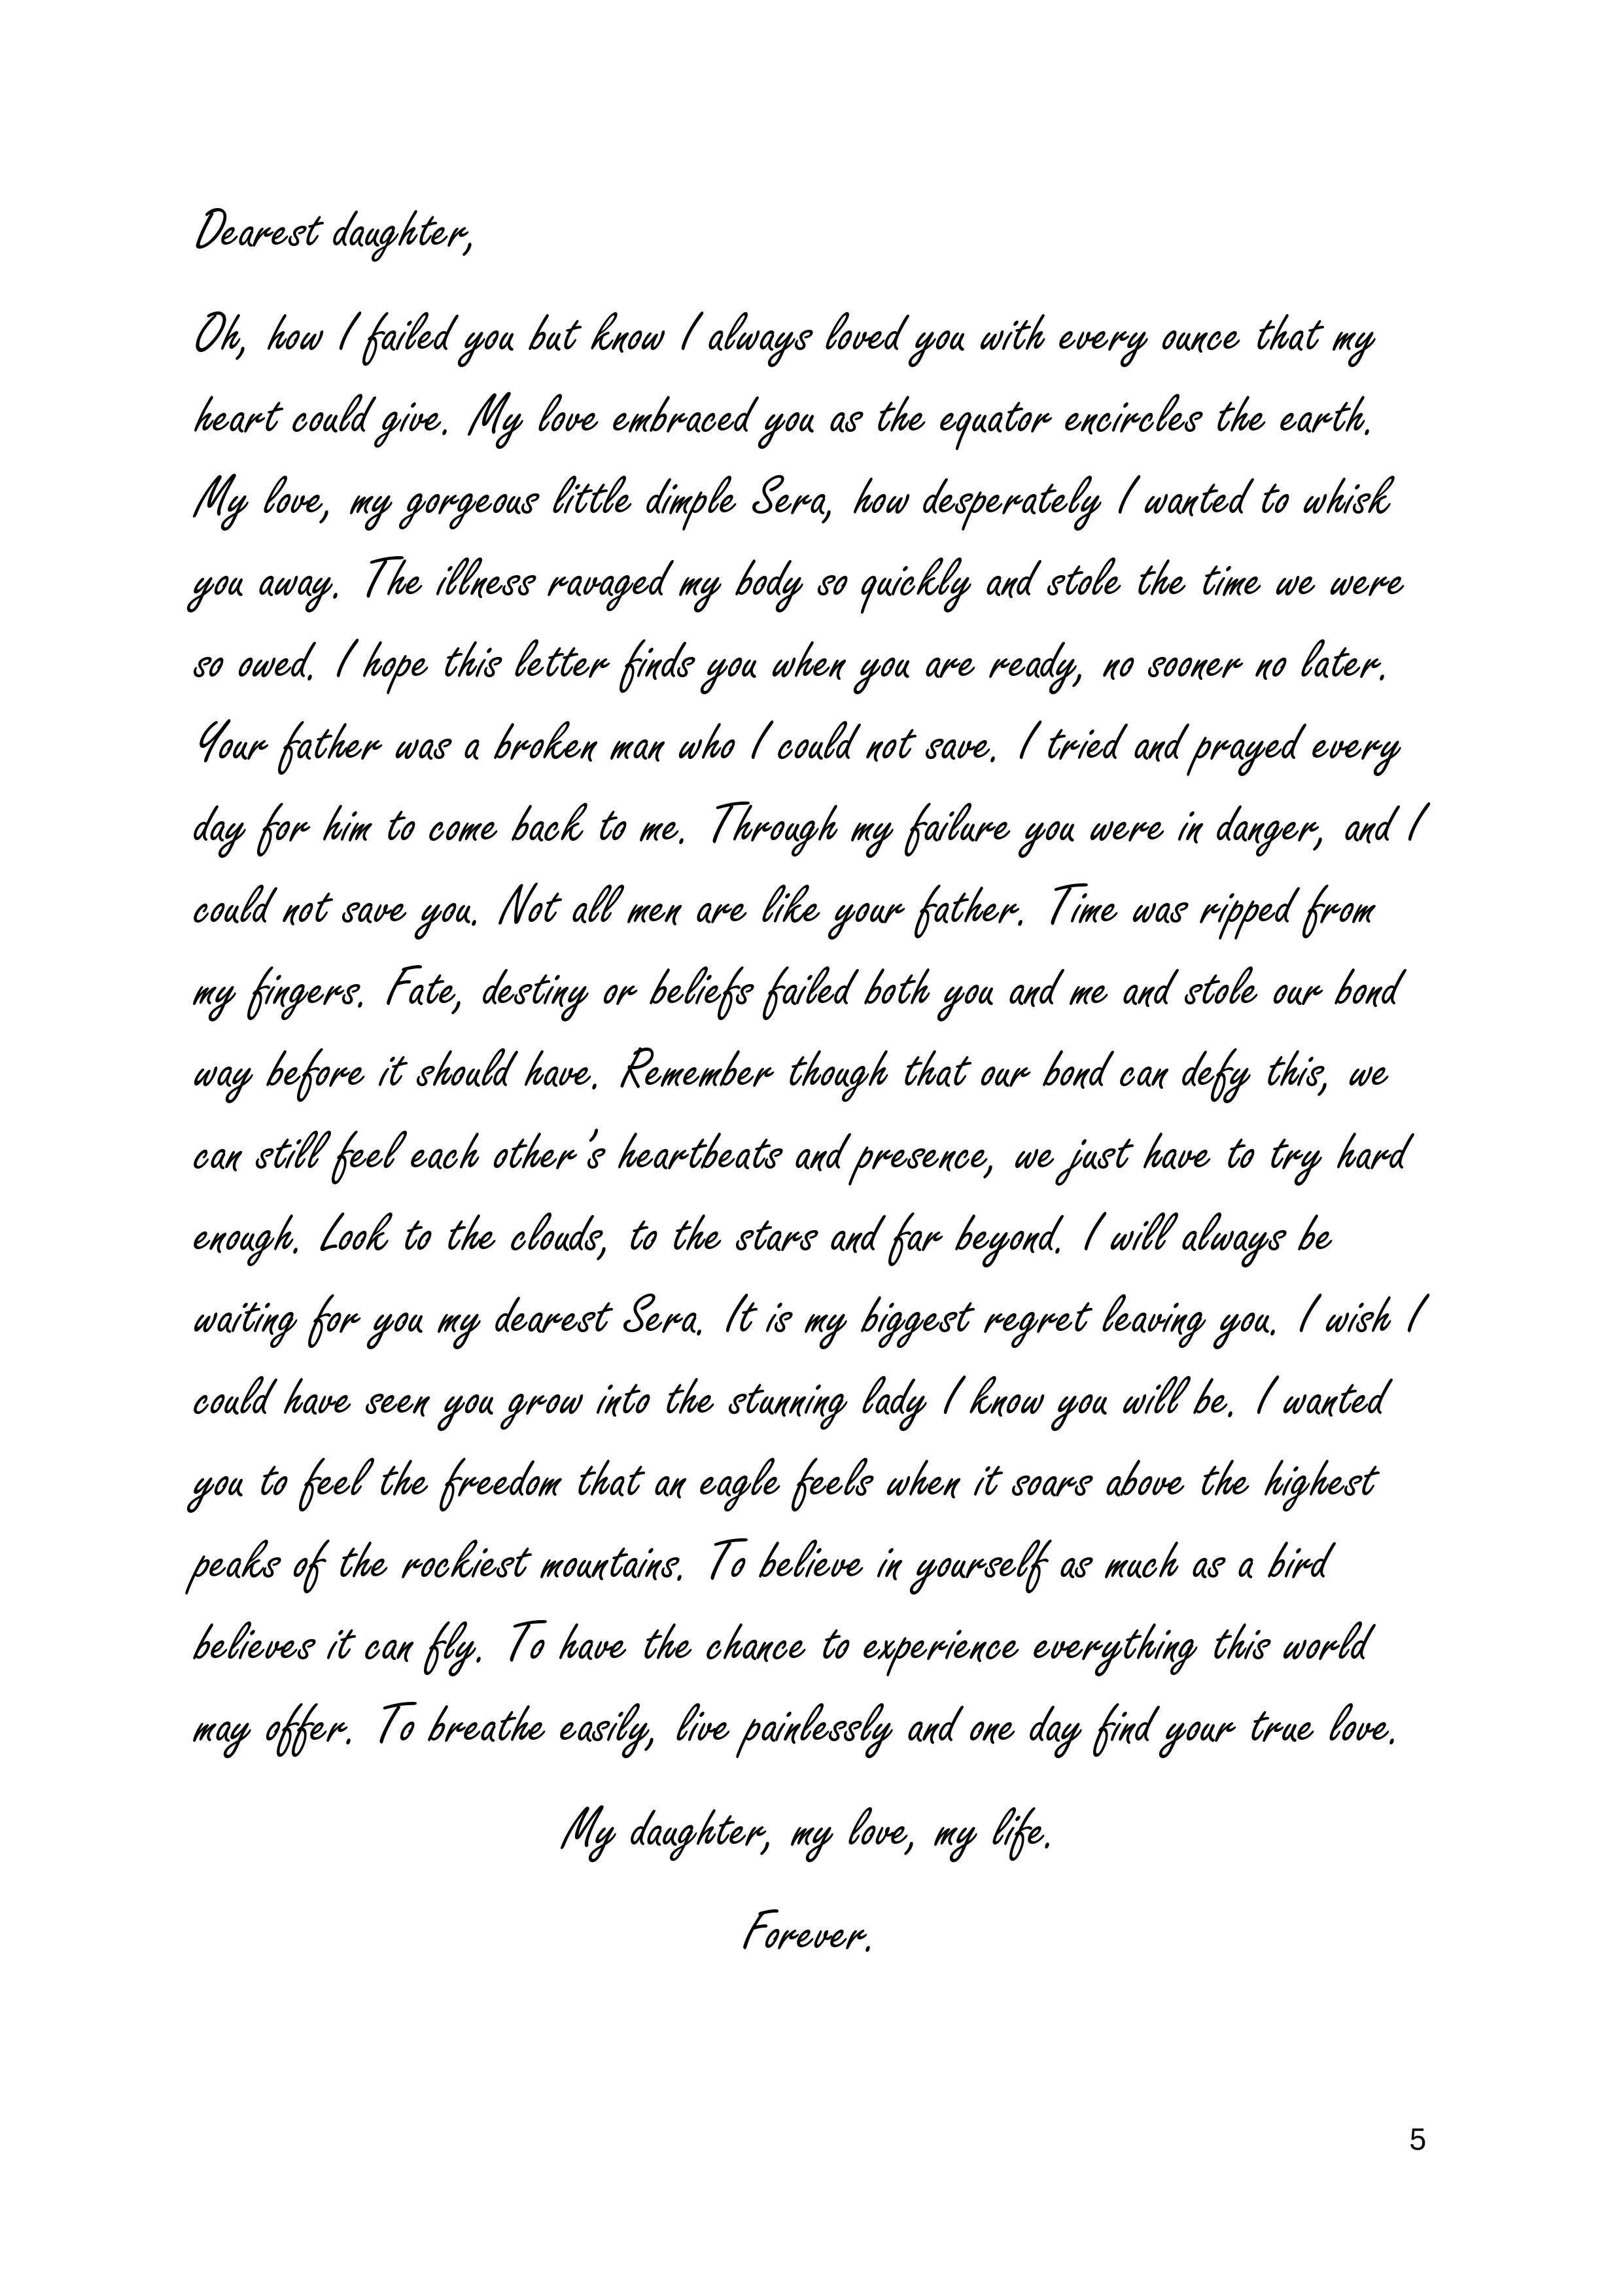 Dearest daughter,
Oh, how I failed you but know I always loved you with every ounce that my
heart could give. My love embraced you as the equator encircles the earth.
My love, my gorgeous little dimple Sera, how desperately I wanted to whisk
you away. The illness ravaged my body so quickly and stole the time we were
so owed. I hope this letter finds you when you are ready, no sooner no later.
Your father was a broken man who I could not save. I tried and prayed every
day for him to come back to me. Through my failure you were in danger, and I
could not save you. Not all men are like your father. Time was ripped from
my fingers. Fate, destiny or beliefs failed both you and me and stole our bond
way before it should have. Remember though that our bond can defy this, we
can still feel each other's heartbeats and presence, we just have to try hard
enough. Look to the clouds, to the stars and far beyond. I will always be
waiting for you my dearest Sera. It is my biggest regret leaving you. I wish I
could have seen you grow into the stunning lady I know you will be. I wanted
you to feel the freedom that an eagle feels when it soars above the highest
peaks of the rockiest mountains. To believe in yourself as much as a bird
believes it can fly. To have the chance to experience everything this world
may offer. To breathe easily, live painlessly and one day find your true love.
My daughter, my love, my life.
Forever.
5